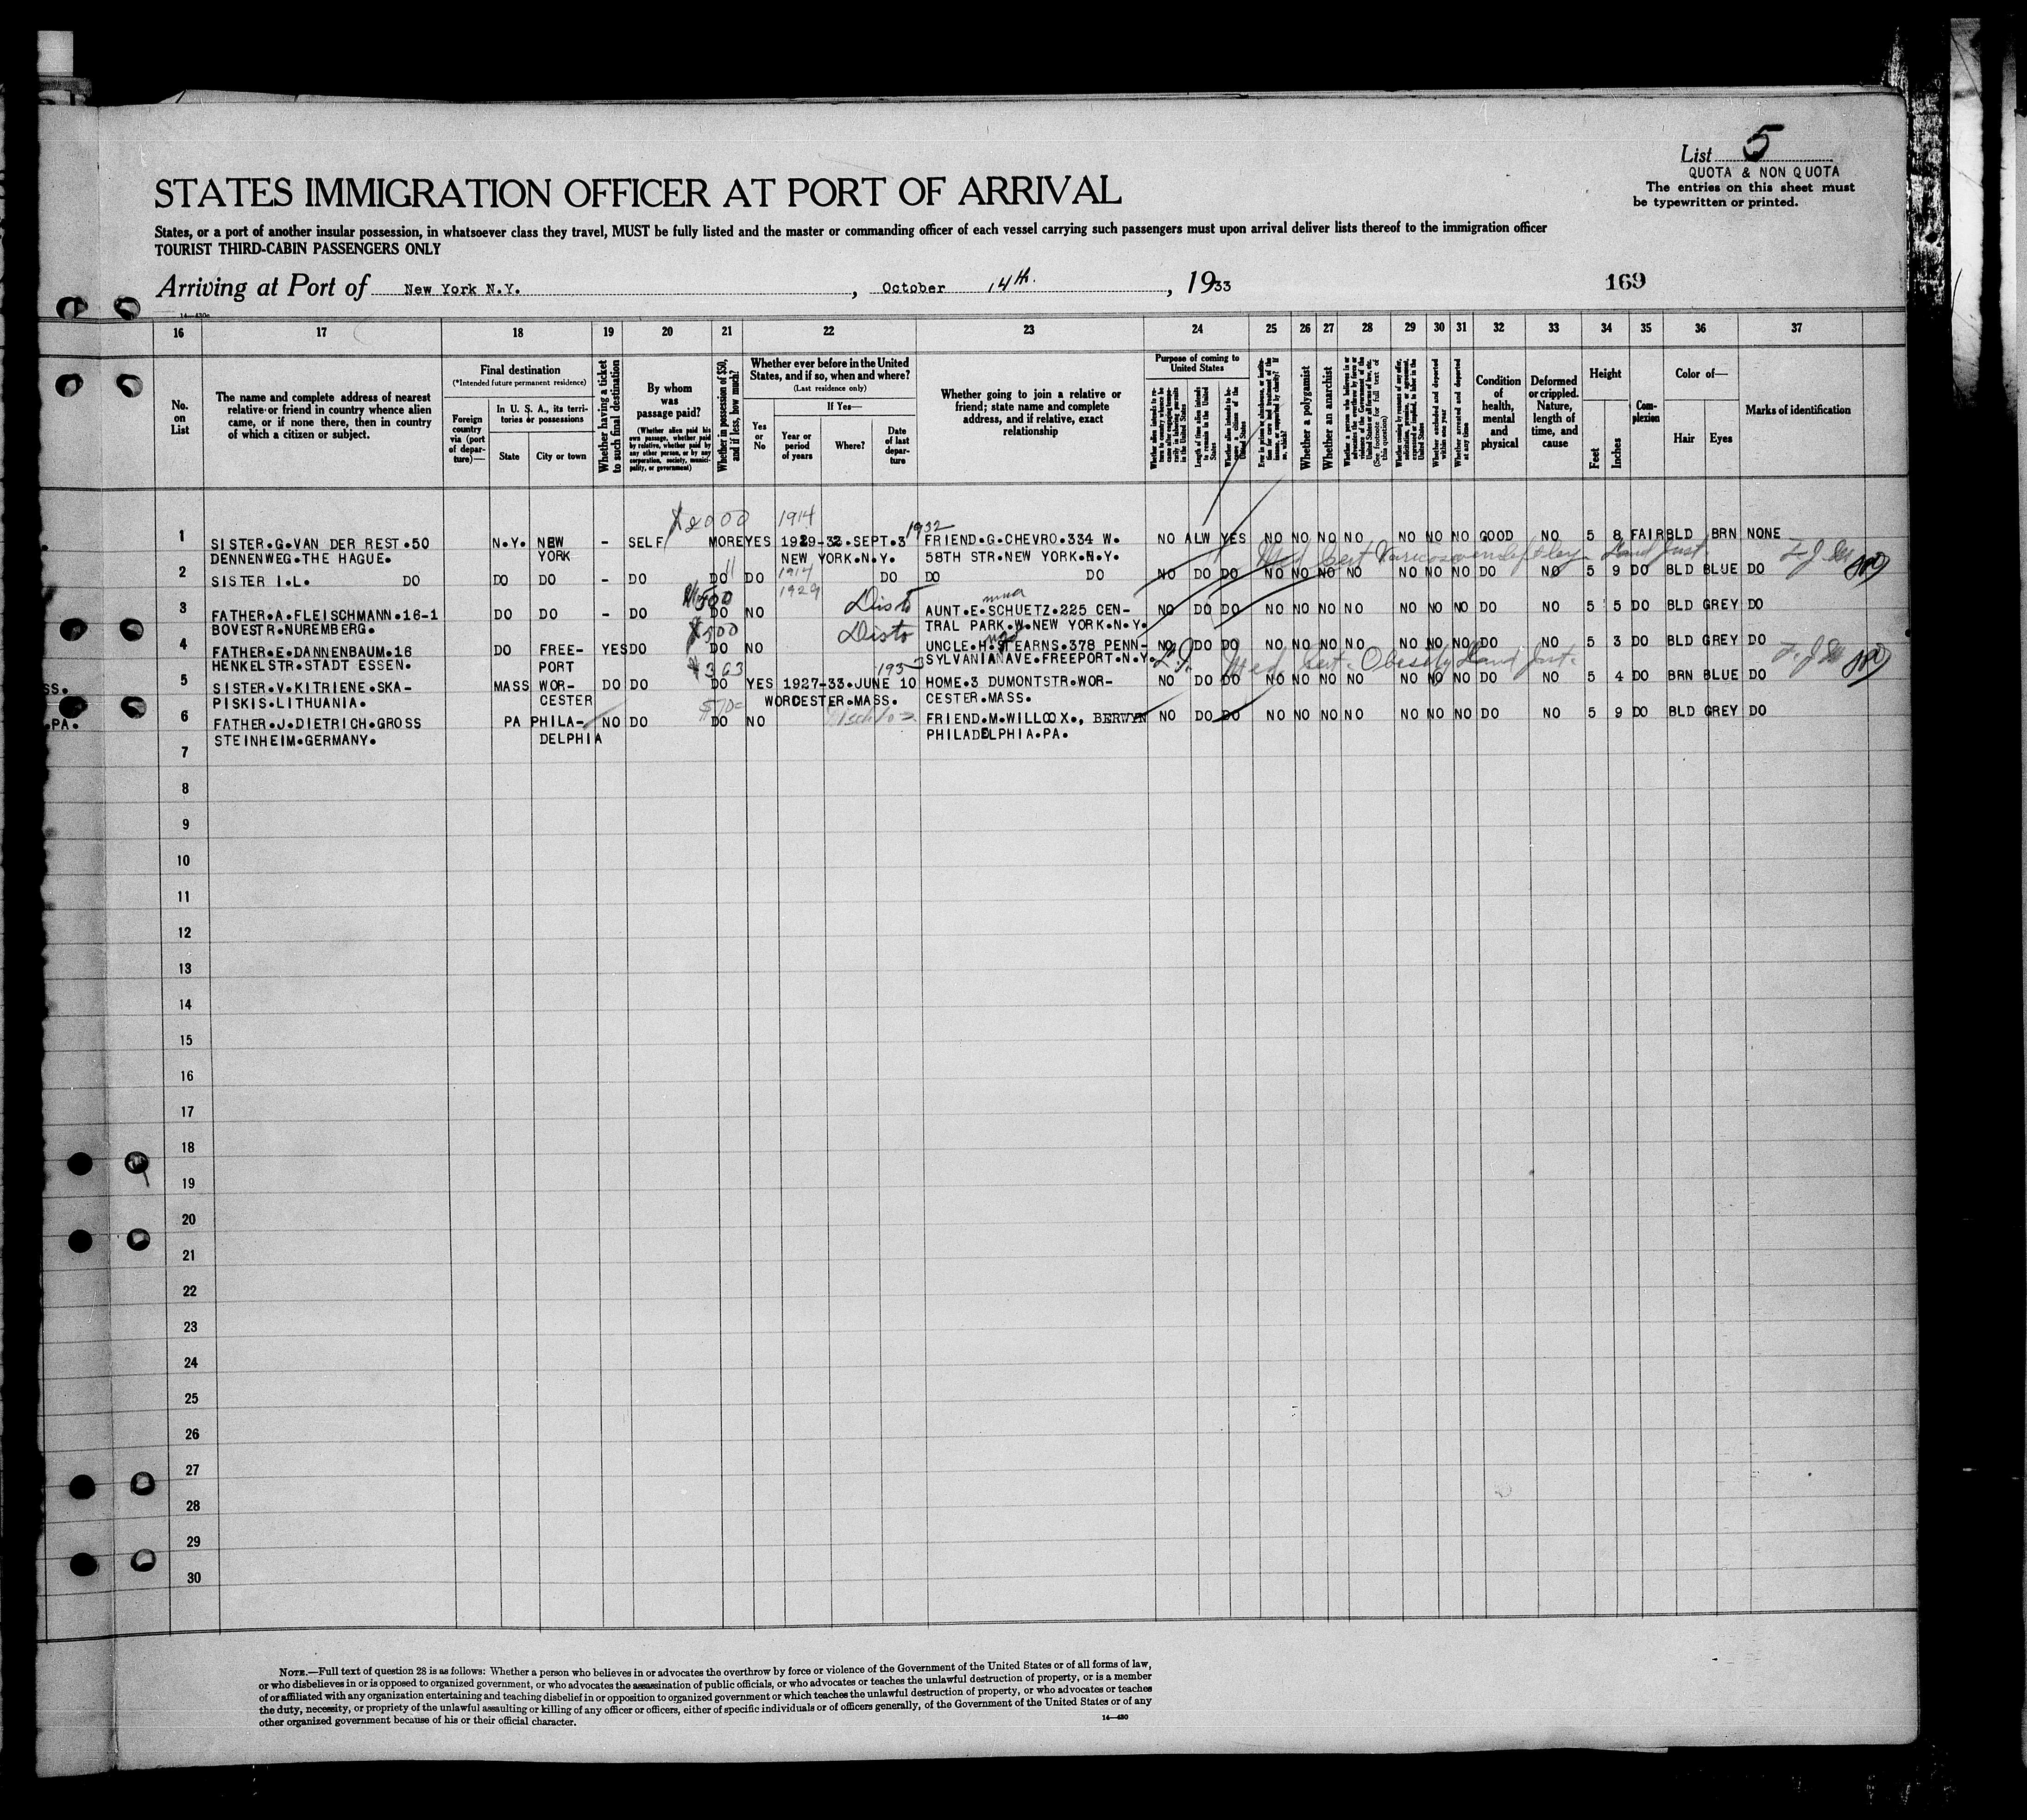 List 5
QUOTA & NON QUOTA
The entries on this sheet must
be typewritten or printed.
STATES IMMIGRATION OFFICER AT PORT OF ARRIVAL
States, or a port of another insular possession, in whatsoever class they travel, MUST be fully listed and the master or commanding officer of each vessel carrying such passengers must upon arrival deliver lists thereof to the immigration officer
TOURIST THIRD-CABIN PASSENGERS ONLY
Arriving at Port of New York N.Y., October 14th, 1933
169
16 17 18 19 20 21 22 23 24 25 26 27 28 29 30 31 32 33 34 35 36 37
No. on List
The name and complete address of nearest
relative or friend in country whence alien
came, or if none there, then in country
of which a citizen or subject.
Final destination
(*Intended future permanent residence)
Foreign country via (port of departure)—
In U. S. A., its territories or possessions
State
City or town
Whether having a ticket to such final destination
By whom was passage paid?
(Whether alien paid his own passage, whether paid by relative, whether paid by any other person, or by any corporation, society, municipality, or government)
Whether in possession of $50, and if less, how much?
Whether ever before in the United
States, and if so, when and where?
(Last residence only)
Yes or No
If Yes—
Year or period of years
Where?
Date of last departure
Whether going to join a relative or
friend; state name and complete
address, and if relative, exact
relationship
Purpose of coming to United States
Length of time alien intends to remain in the United States
Whether a polygamist
Whether an anarchist
Whether arrested and deported at any time
Condition of health, mental and physical
Deformed or crippled. Nature, length of time, and cause
Height
Feet
Inches
Complexion
Color of—
Hair
Eyes
Marks of identification
$2000 1914 1932
1 SISTER.G.VAN DER REST.50 N.Y. NEW - SELF MORE YES 1929-32.SEPT.3 FRIEND.G.CHEVRO.334 W. NO ALW YES NO NO NO NO NO NO NO GOOD NO 5 8 FAIR BLD BRN NONE
DENNENWEG.THE HAGUE. YORK NEW YORK.N.Y. 58TH STR.NEW YORK.N.Y.
2 SISTER I.L. DO DO DO - DO DO DO 1914 DO DO DO NO DO DO NO NO NO NO NO NO NO DO NO 5 9 DO BLD BLUE DO
1929
$500
3 FATHER.A.FLEISCHMANN.16-1 DO DO - DO DO NO AUNT.E.SCHUETZ.225 CEN- NO DO DO NO NO NO NO NO NO NO DO NO 5 5 DO BLD GREY DO
BOVESTR.NUREMBERG. $500 TRAL PARK.W.NEW YORK.N.Y.
4 FATHER.E.DANNENBAUM.16 DO FREE- YES DO DO NO UNCLE.H.STEARNS.378 PENN- NO DO DO NO NO NO NO NO NO NO DO NO 5 3 DO BLD GREY DO
HENKELSTR.STADT ESSEN. PORT $363 1933 SYLVANIANAVE.FREEPORT.N.Y. Med Cert. Obesity Land Just.
SS. 5 SISTER.V.KITRIENE.SKA- MASS WOR- DO DO DO YES 1927-33.JUNE 10 HOME.3 DUMONTSTR.WOR- NO DO DO NO NO NO NO NO NO NO DO NO 5 4 DO BRN BLUE DO
PISKIS.LITHUANIA. CESTER WORCESTER.MASS. CESTER.MASS.
PA. 6 FATHER.J.DIETRICH.GROSS PA PHILA- NO DO DO NO FRIEND.M.WILLCOX., BERWYN NO DO DO NO NO NO NO NO NO NO DO NO 5 9 DO BLD GREY DO
STEINHEIM.GERMANY. DELPHIA PHILADELPHIA.PA.
7
8
9
10
11
12
13
14
15
16
17
18
19
20
21
22
23
24
25
26
27
28
29
30
NOTE.—Full text of question 28 is as follows: Whether a person who believes in or advocates the overthrow by force or violence of the Government of the United States or of all forms of law,
or who disbelieves in or is opposed to organized government, or who advocates the assassination of public officials, or who advocates or teaches the unlawful destruction of property, or is a member
of or affiliated with any organization entertaining and teaching disbelief in or opposition to organized government or which teaches the unlawful destruction of property, or who advocates or teaches
the duty, necessity, or propriety of the unlawful assaulting or killing of any officer or officers, either of specific individuals or of officers generally, of the Government of the United States or of any
other organized government because of his or their official character.
14—430